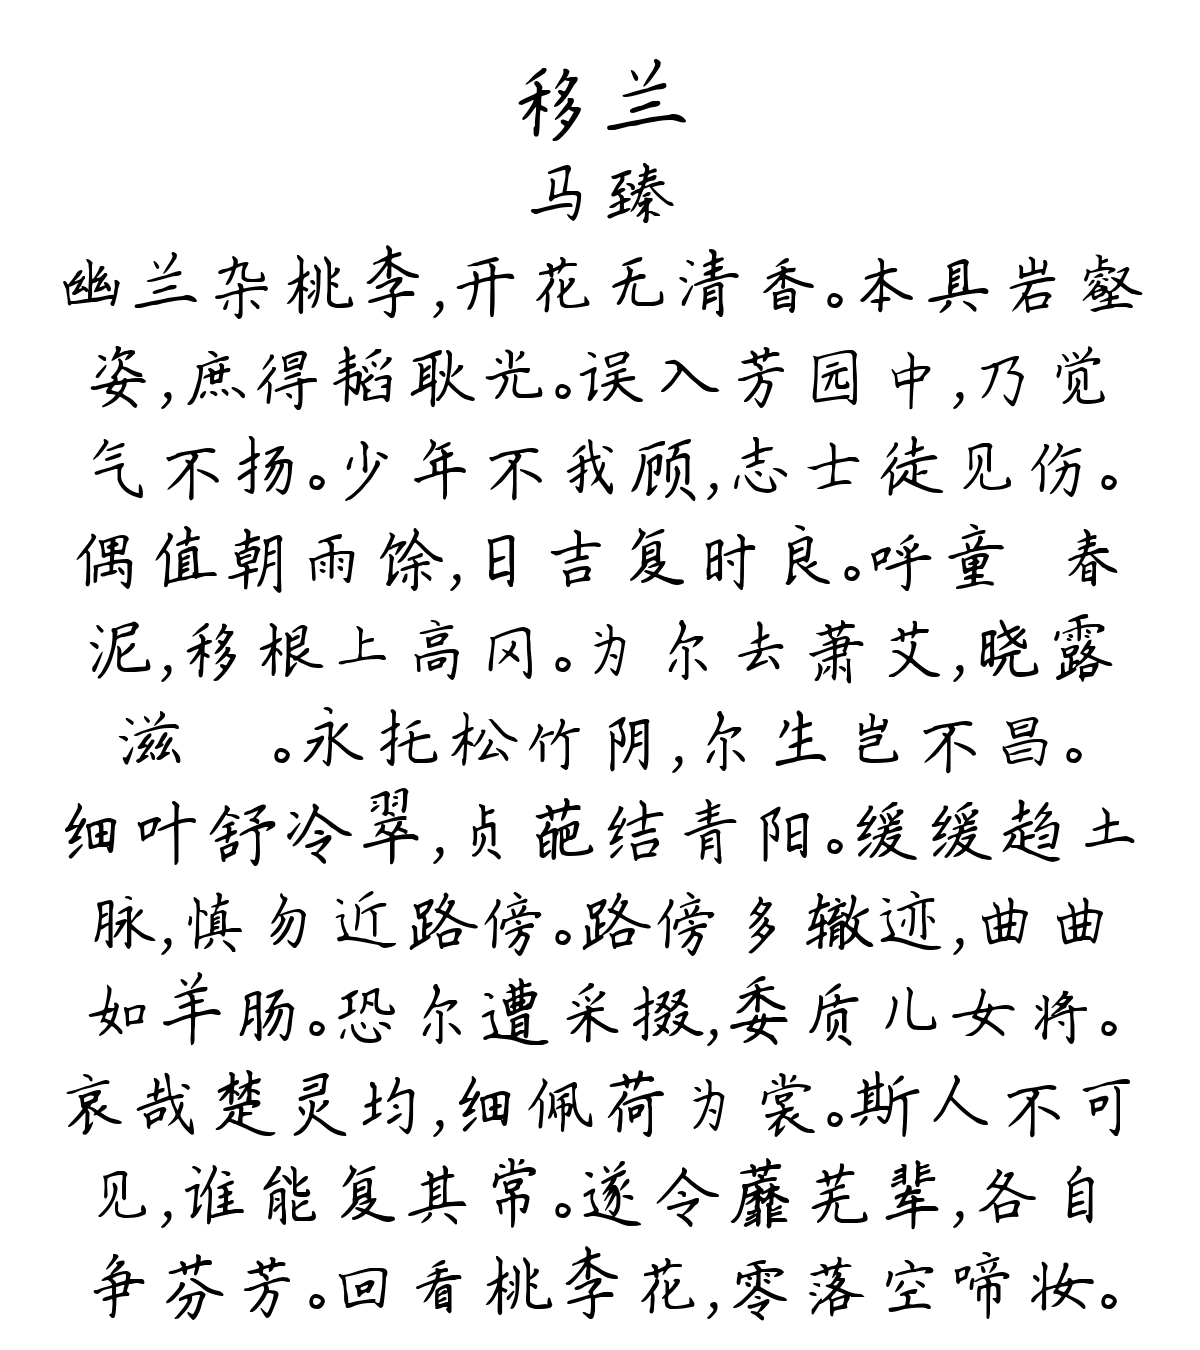 移兰
马臻
幽兰杂桃李,开花无清香。本具岩壑
姿,庶得韬耿光。误入芳园中,乃觉
气不扬。少年不我顾,志士徒见伤。
偶值朝雨馀,日吉复时良。呼童 春
泥,移根上高冈。为尔去萧艾,晓露
滋 。永托松竹阴,尔生岂不昌。
细叶舒冷翠,贞葩结青阳。缓缓趋土
脉,慎勿近路傍。路傍多辙迹,曲曲
如羊肠。恐尔遭采掇,委质儿女将。
哀哉楚灵均,细佩荷为裳。斯人不可
见,谁能复其常。遂令蘼芜辈,各自
争芬芳。回看桃李花,零落空啼妆。